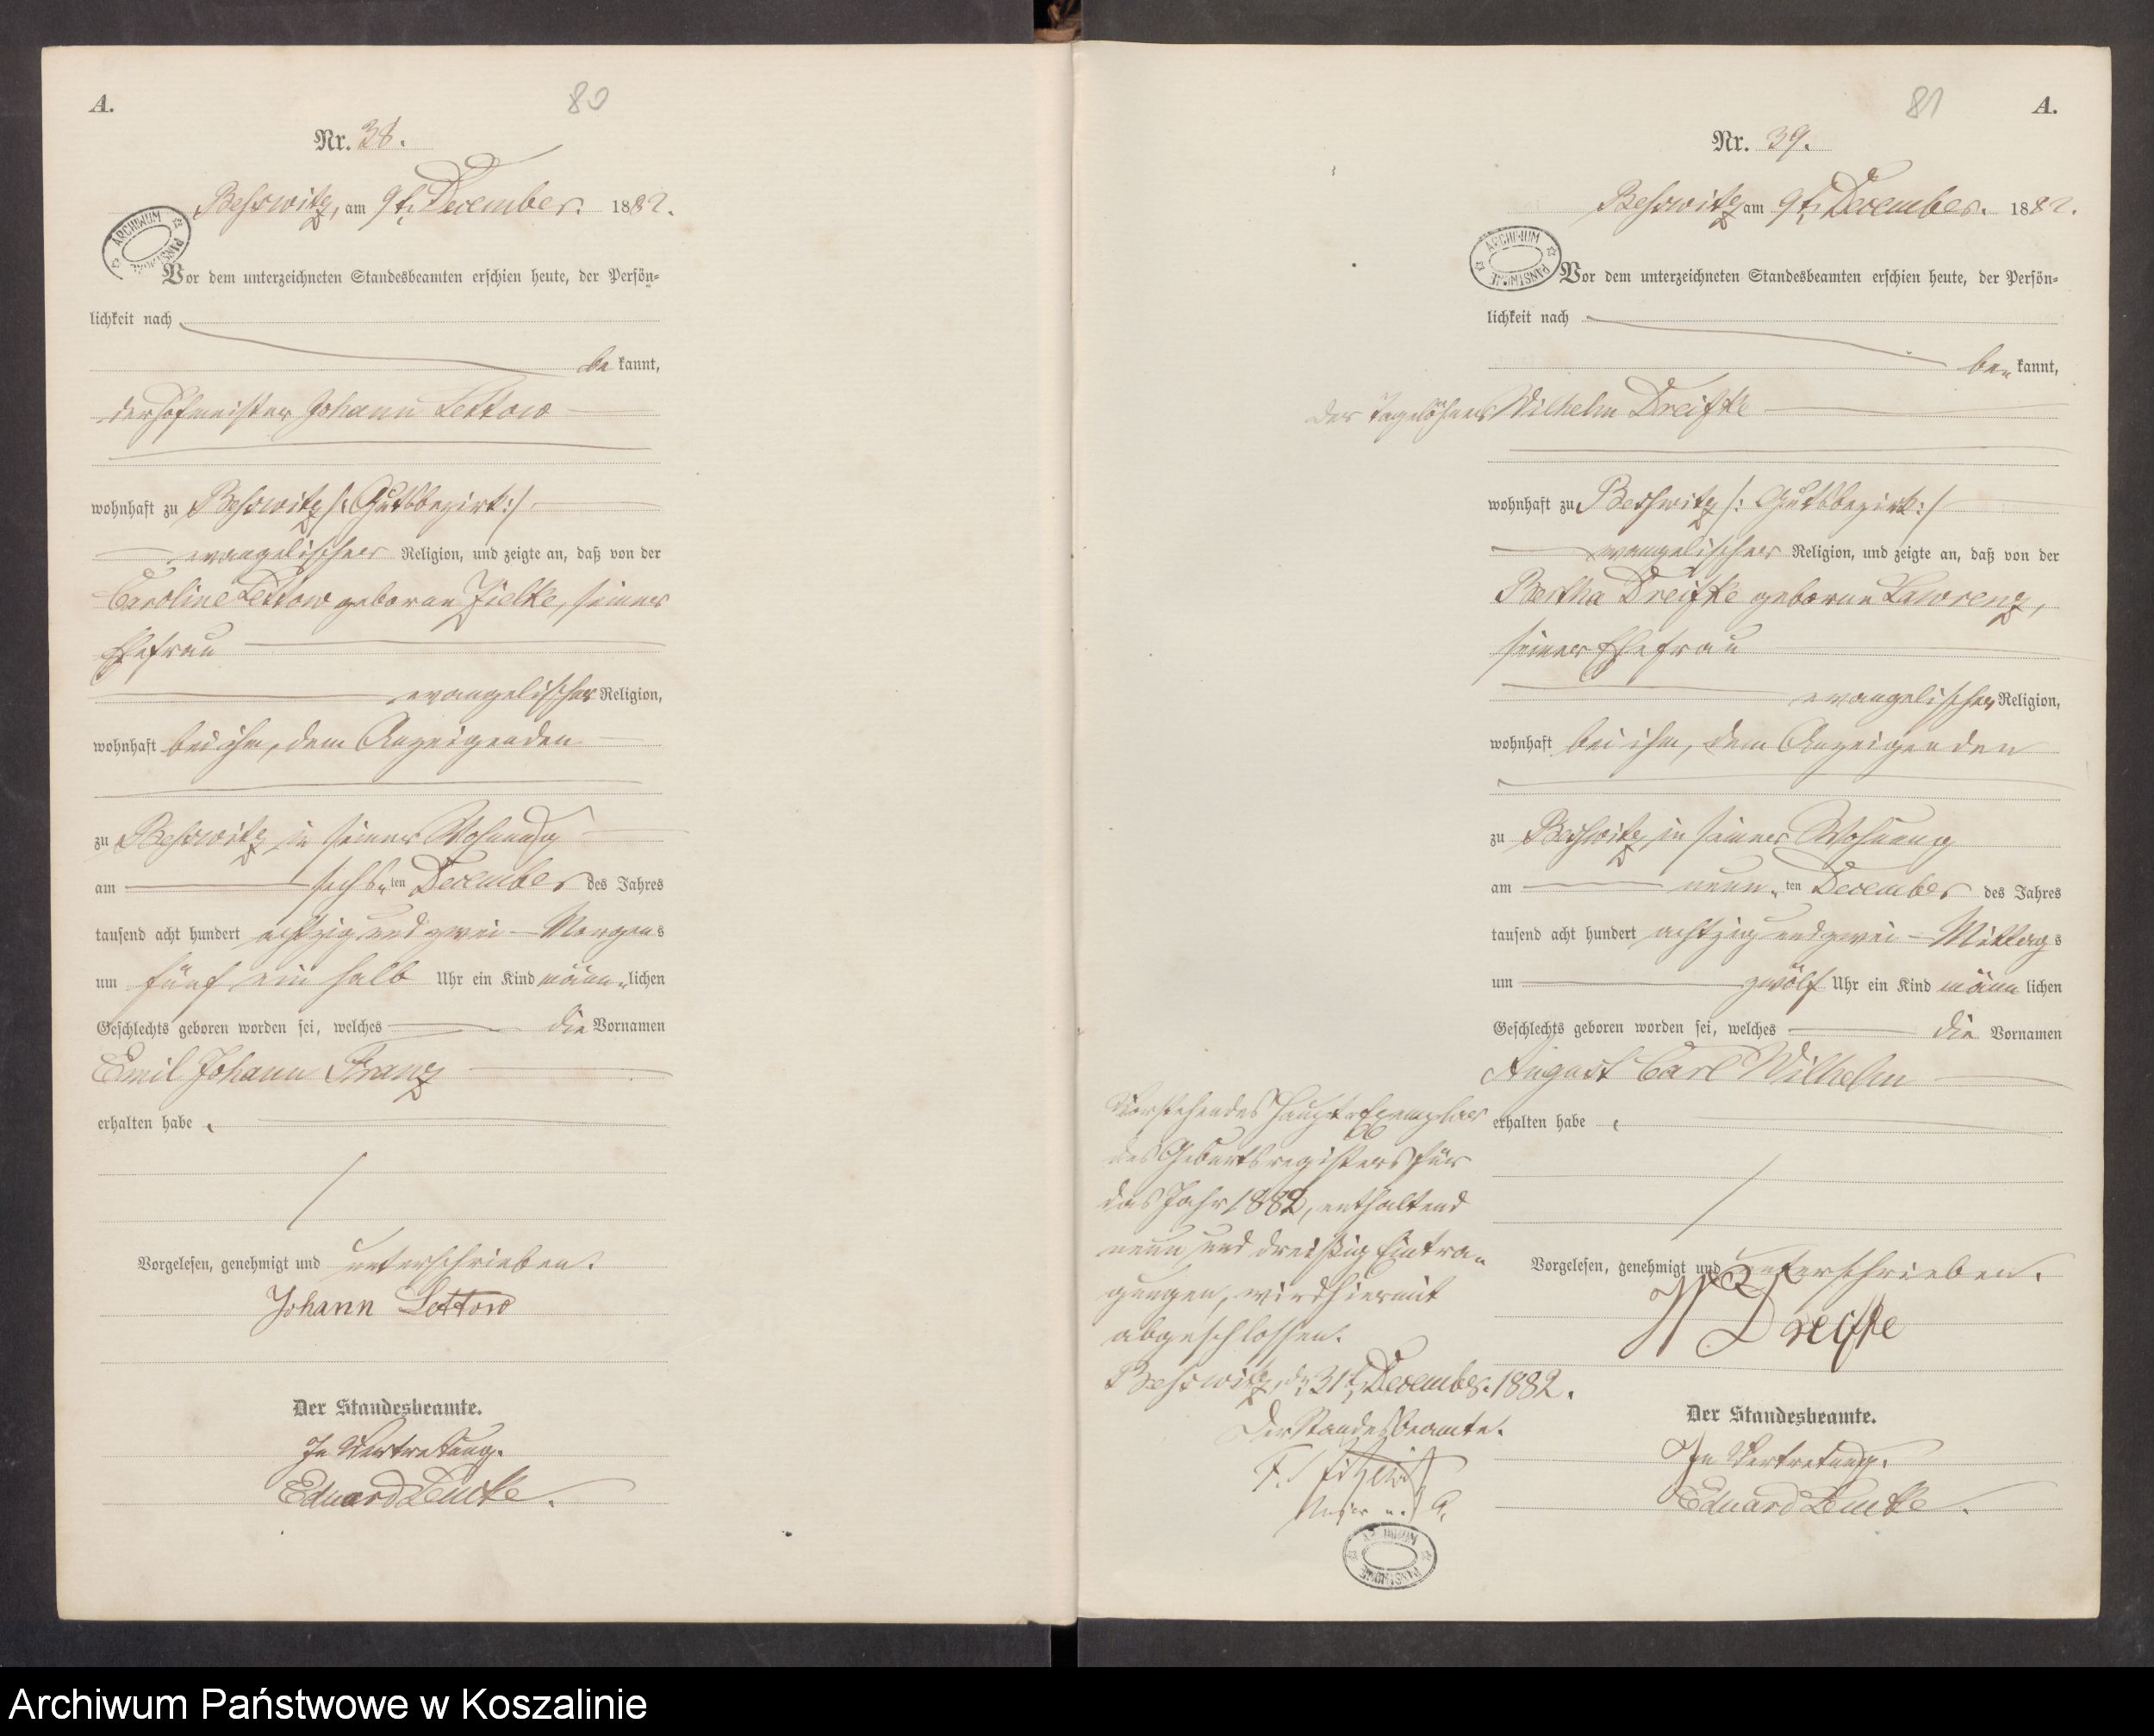 A.
80
Nr. 38.
Beßwitz, am 9t. December. 1882.
ARCHIWUM PAŃSTWOWE
Vor dem unterzeichneten Standesbeamten erschien heute, der Persön-
lichkeit nach
be kannt,
der Hofmeister Johann Lettow
wohnhaft zu Beßwitz /: Gutsbezirk :/
evangelischer Religion, und zeigte an, daß von der
Caroline Lettow geborne Zielke, seiner
Ehefrau
evangelischer Religion,
wohnhaft bei ihm, dem Anzeigenden
zu Beßwitz in seiner Wohnung
am sechs ten December des Jahres
tausend acht hundert achtzig und zwei Morgens
um fünf ein halb Uhr ein Kind männ lichen
Geschlechts geboren worden sei, welches die Vornamen
Emil Johann Franz
erhalten habe.
Vorgelesen, genehmigt und unterschrieben.
Johann Lettow
Der Standesbeamte.
In Vertretung.
Eduard Lemcke.
81
A.
Nr. 39.
Beßwitz am 9t. December. 1882.
ARCHIWUM PAŃSTWOWE
Vor dem unterzeichneten Standesbeamten erschien heute, der Persön-
lichkeit nach
be kannt,
der Tagelöhner Wilhelm Dreifke
wohnhaft zu Beßwitz /: Gutsbezirk :/
evangelischer Religion, und zeigte an, daß von der
Bertha Dreifke geborne Lawrenz,
seiner Ehefrau
evangelischer Religion,
wohnhaft bei ihm, dem Anzeigenden
zu Beßwitz, in seiner Wohnung
am neun ten December des Jahres
tausend acht hundert achtzig und zwei Mittags
um zwölf Uhr ein Kind männ lichen
Geschlechts geboren worden sei, welches die Vornamen
August Carl Wilhelm
erhalten habe.
Vorgelesen, genehmigt und unterschrieben.
W Dreifke
Der Standesbeamte.
In Vertretung.
Eduard Lemcke.
Vorstehendes Haupt-Exemplar
des Geburtsregisters für
das Jahr 1882, enthaltend
neun und dreißig Eintra-
gungen, wird hiermit
abgeschlossen.
Beßwitz, d. 31t. December. 1882.
Der Standesbeamte.
ARCHIWUM PAŃSTWOWE
Archiwum Państwowe w Koszalinie